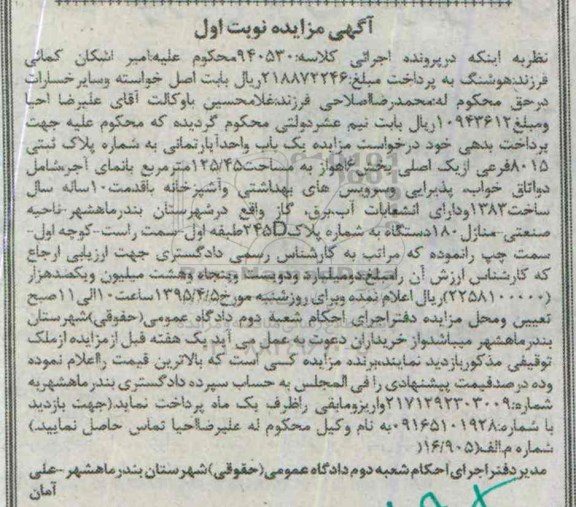 آگهی مزایده نوبت اول
نظربه اینکه درپرونده اجرائی کلاسه:۹۴۰۵۳۰محکوم علیه:امیر اشکان کمائی
فرزند:هوشنگ به پرداخت مبلغ:۲۱۸۸۷۲۲۴۶ریال بابت اصل خواسته وسایرخسارات
درحق محکوم له:محمدرضااصلاحی فرزند:غلامحسین باوکالت آقای علیرضا احیا
ومبلغ۱۰۹۴۳۶۱۲ریال بابت نیم عشردولتی محکوم گردیده که محکوم علیه جهت
پرداخت بدهی خود درخواست مزایده یک باب واحدآپارتمانی به شماره پلاک ثبتی
۸۰۱۵فرعی ازیک اصلی بخش ۸اهواز به مساحت۱۴۵/۴۵مترمربع بانمای آجرشامل
دواتاق خواب، پذیرایی وسرویس های بهداشتی وآشپزخانه باقدمت۱۰ساله سال
ساخت۱۳۸۳ودارای انشعابات آب،برق، گاز واقع درشهرستان بندرماهشهر-ناحیه
صنعتی-منازل۱۸۰دستگاه به شماره پلاک۲۴۵Dطبقه اول-سمت راست--کوچه اول-
سمت چپ رانموده که مراتب به کارشناس رسمی دادگستری جهت ارزیابی ارجاع
که کارشناس ارزش آن رامبلغ:دومیلیارد ودویست وپنجاه وهشت میلیون ویکصدهزار
(۲۲۵۸۱۰۰۰۰۰)ریال اعلام نمده وبرای روزشنبه مورخ۱۳۹۵/۴/۵ساعت۱۰الی۱۱صبح
تعیین ومحل مزایده دفتراجرای احکام شعبه دوم دادگاه عمومی(حقوقی)شهرستان
بندرماهشهر میباشدواز خریداران دعوت به عمل می آید یک هفته قبل ازمزایده ازملک
توقیفی مذکوربازدید نمایند.برنده مزایده کسی است که بالاترین قیمت رااعلام نموده
وده درصدقیمت پیشنهادی رافی المجلس به حساب سپرده دادگستری بندرماهشهربه
شماره:۲۱۷۱۲۹۲۳۰۳۰۰۹واریزومابقی راظرف یک ماه پرداخت نماید.(جهت بازدید
با شماره:۰۹۱۶۵۱۰۱۹۲۸به نام وکیل محکوم له علیرضااحیا تماس حاصل نمایید.)
شماره م.الف(۱۶/۹۰۵)
مدیردفتراجرای احکام شعبه دوم دادگاه عمومی(حقوقی)شهرستان بندرماهشهر-علی
آمان